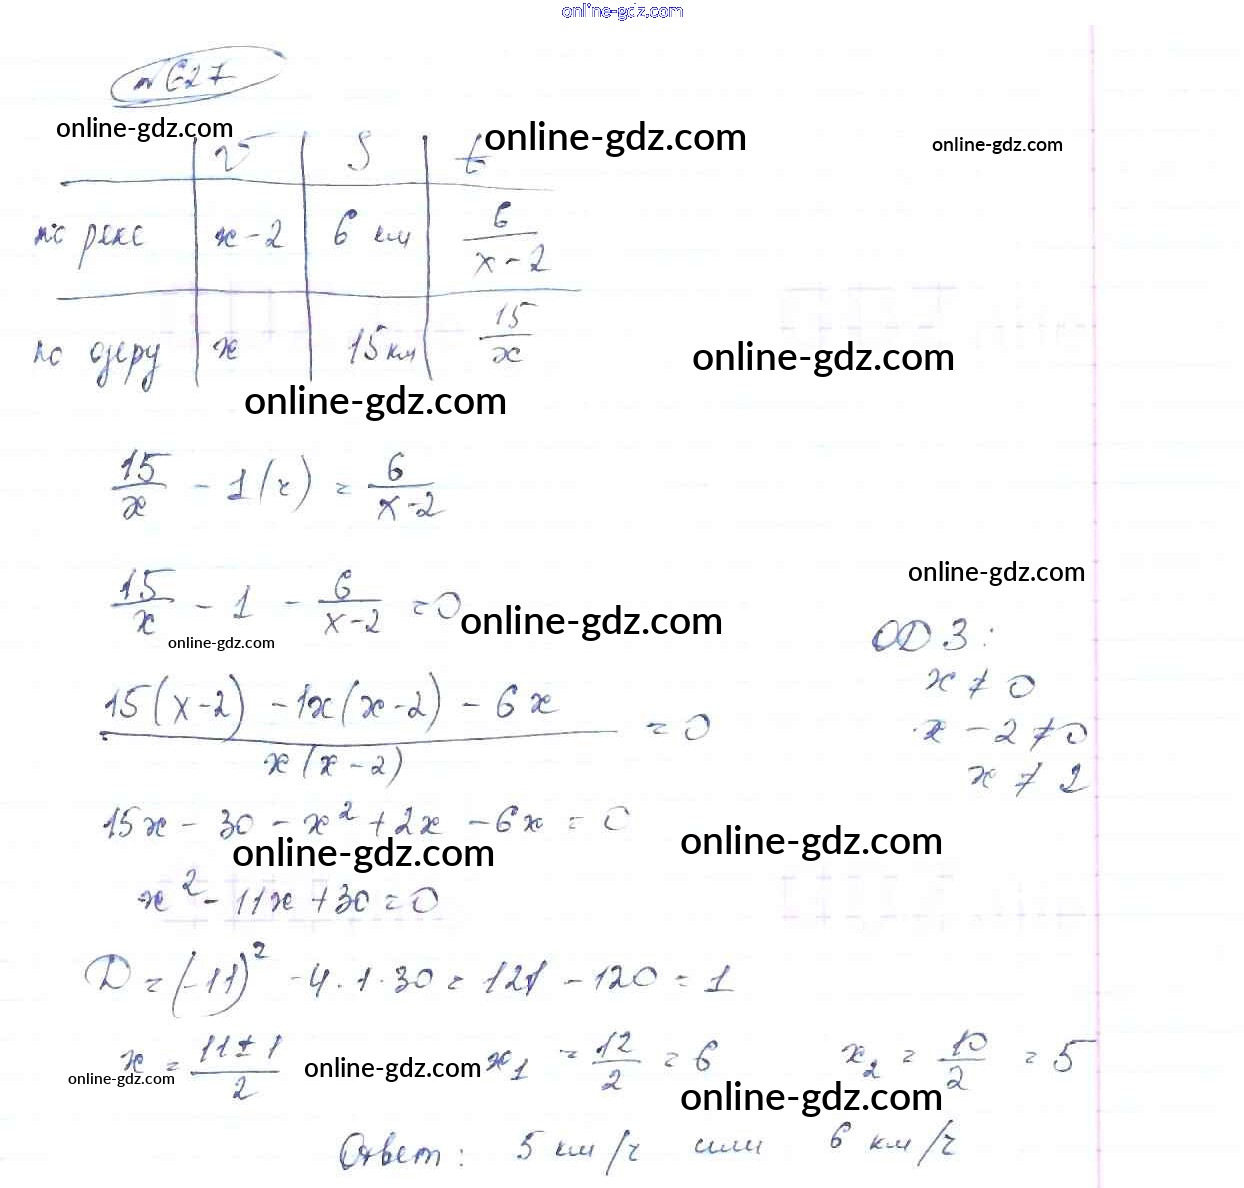 online-gdz.com
№627
online-gdz.com online-gdz.com online-gdz.com
v S t
по реке x-2 6 км 6/(x-2)
по озеру x 15 км 15/x
online-gdz.com
online-gdz.com
15/x - 1(ч) = 6/(x-2)
15/x - 1 - 6/(x-2) = 0
online-gdz.com
online-gdz.com
online-gdz.com
ОДЗ:
x ≠ 0
x - 2 ≠ 0
x ≠ 2
(15(x-2) - 1x(x-2) - 6x)/(x(x-2)) = 0
15x - 30 - x² + 2x - 6x = 0
online-gdz.com online-gdz.com
x² - 11x + 30 = 0
D = (-11)² - 4·1·30 = 121 - 120 = 1
x = (11±1)/2 x₁ = 12/2 = 6 x₂ = 10/2 = 5
online-gdz.com online-gdz.com online-gdz.com
Ответ: 5 км/ч или 6 км/ч